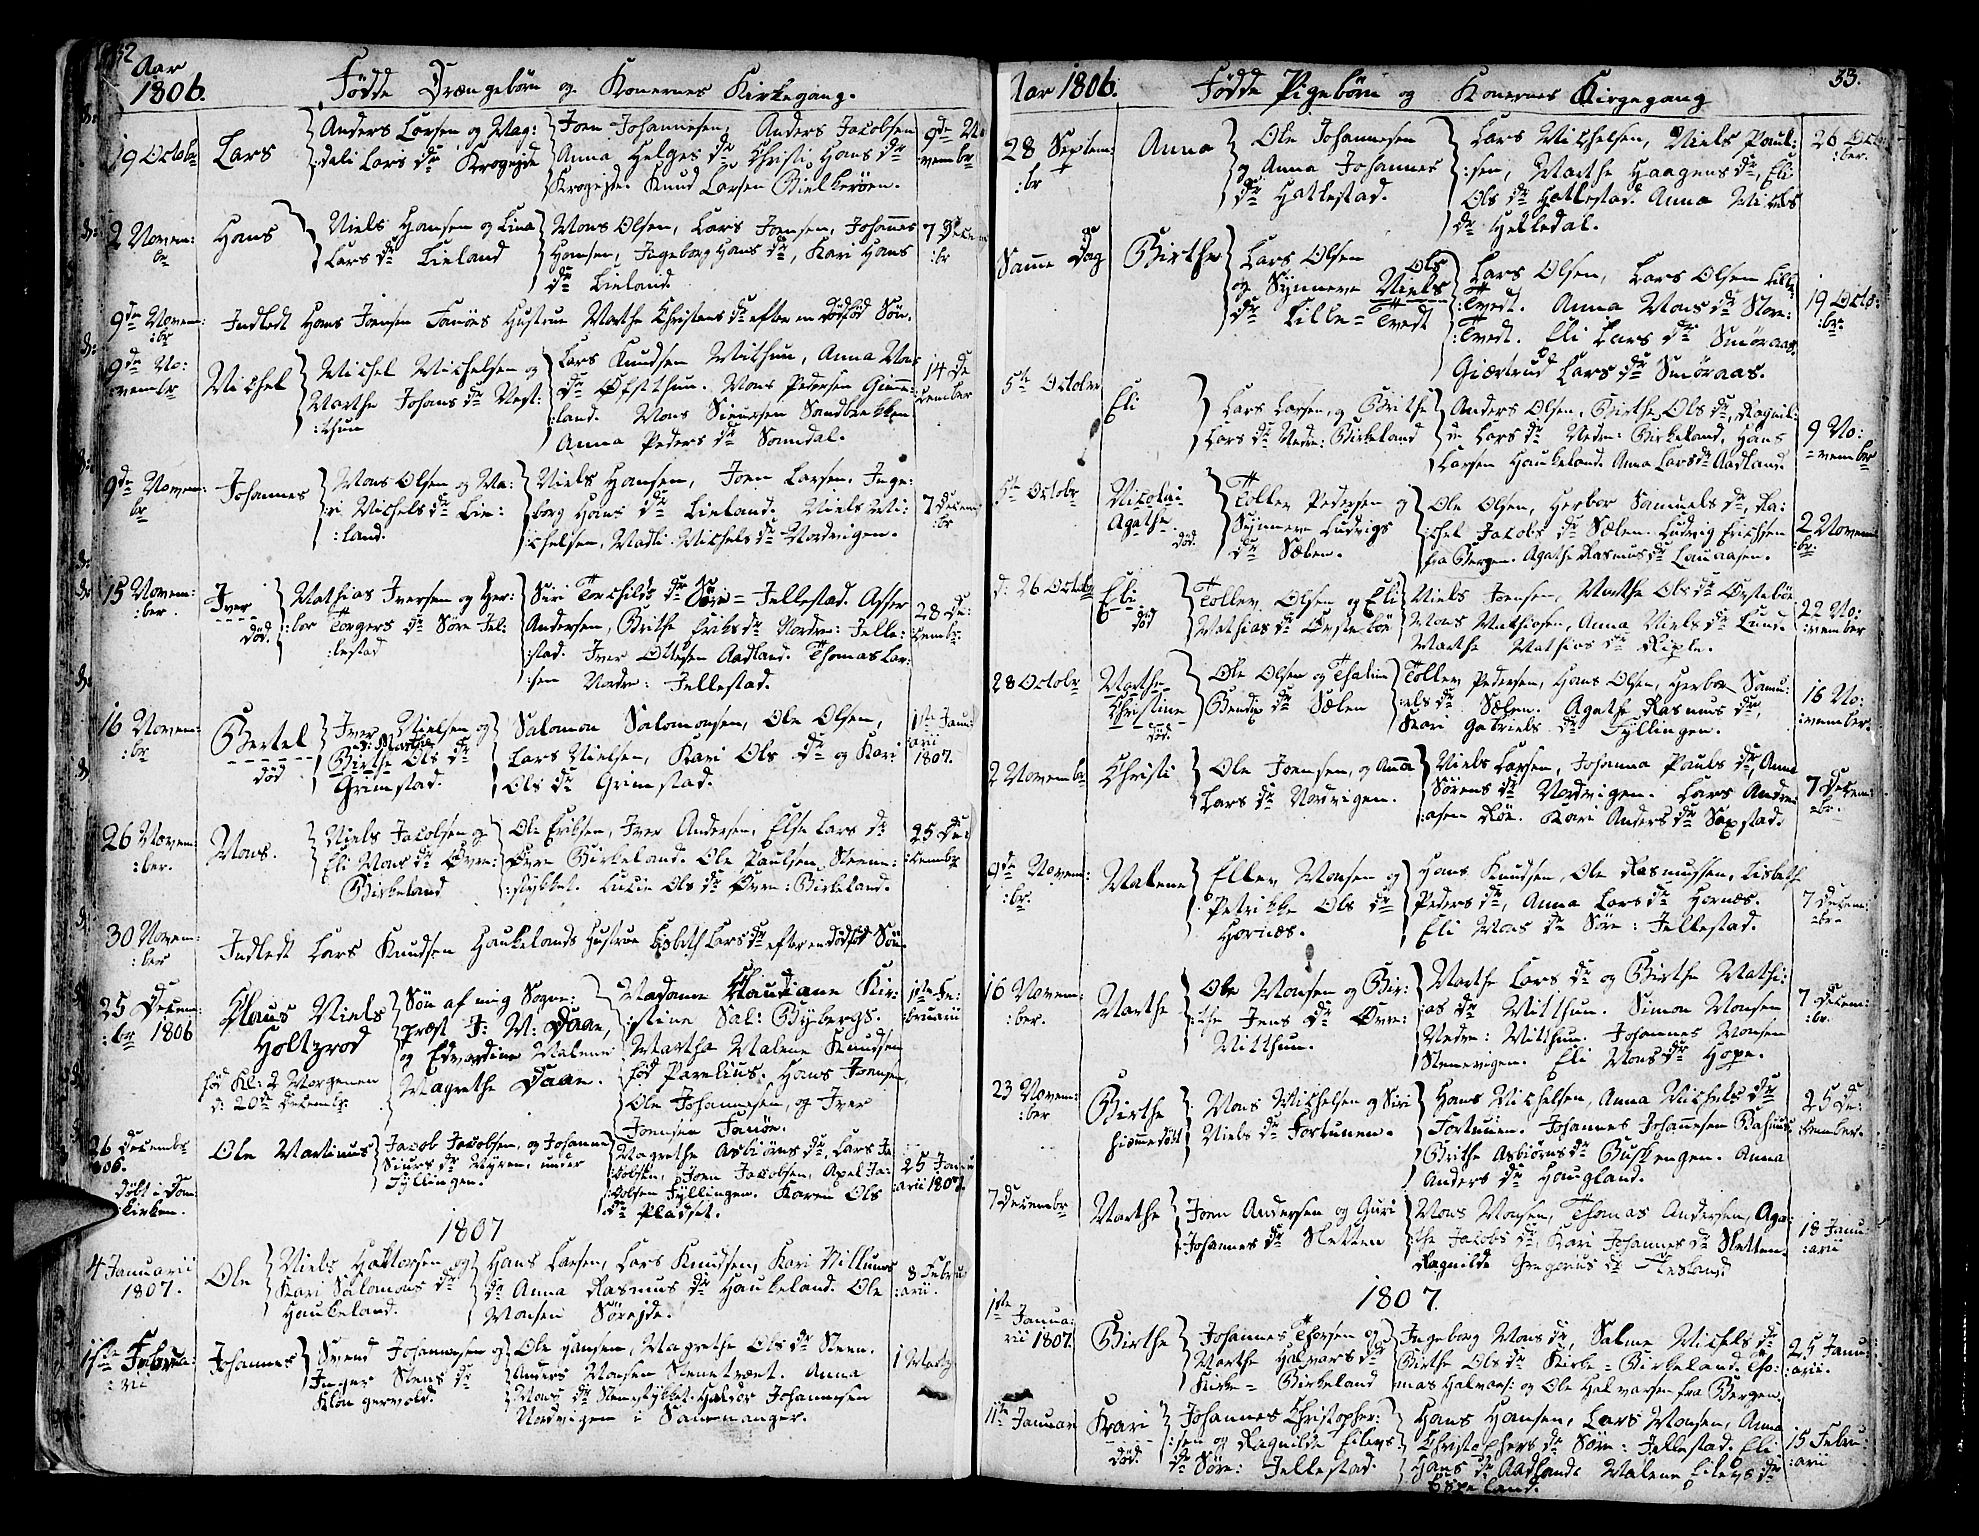 32
Aar
1806.
Fødde Drængebørn og Konernes Kirkegang.
19 Octobr
Lars
Anders Larsen og Mag:
:dali Lars dr Krogejde
Joen Johannesen, Anders Jacobsen
Anna Helges dr Christi Hans dr
Krogejde. Knud Larsen Bielkerøen.
9de No
vembr
2 Novem:
br
Hans
Niels Hansen og Lina
Lars dr Lieland
Mons Olsen, Lars Joensen, Johannes
Hansen, Ingeborg Hans dr, Kari Hans
dr Lieland.
7 Decem
:br
9de Novem:
:br
Indledt Hans Joensen Fanøes Hustrue Marthe Christens dr efter en dødfød Søn.
9de No:
vembr
Michel
Michel Michelsen og
Marthe Johans dr Mest:
:thun
Lars Knudsen Mitthun, Anna Mons
dr Øfstthun. Mons Pedersen Gimme:
:land. Mons Siursen Sandbrekken
Anna Peders dr Samdal.
14 De
cember
9de Novem:
br
Johannes
Mons Olsen og Ma:
:ri Michels dr Lie:
:land.
Niels Hansen, Joen Larsen, Inge:
:borg Hans dr Lieland. Niels Mi:
:chelsen, Madli Michels dr Nordvigen.
7 Decem
:br
15 Novem:
:ber.
Iver
død.
Mathias Iversen og Her:
:bor Torgers dr Søre Jel:
:lestad
Siri Torchilds dr Søre = Jellestad. Asser
Andersen, Brithe Eriks dr Nordre: Jelle:
:stad. Iver Ottesen Aadland. Thomas Lar:
:sen Nordre: Jellestad.
28 De:
:cembr.
16 Novem:
:br
Bertel
død
Iver Nielsen og
d: Marthe
Birthe Ols dr
Grimstad.
Salomon Salomonsen, Ole Olsen,
Lars Nielsen, Kari Ols dr og Kari
Ols dr Grimstad.
1ste Janu:
:arii
1807.
26 Novem:
:ber.
Mons.
Niels Jacobsen og
Eli Mons dr Øvre:
Birkeland
Ole Eriksen, Iver Andersen, Else Lars dr
Øvre Birkeland. Ole Paulsen, Steens:
:stykket. Lucie Ols dr Øvre: Birkeland.
25 De:
:cembr
30 Novem:
:ber
Indledt Lars Knudsen Haukelands Hustrue Lisbeth Lars dr efter en dødfød Søn.
25 Decem:
:br 1806
Claus Niels
Holtzrod
fød Kl: 2 Morgenen
d: 20de Decembr.
Søn af mig Sogne:
:præst J: M: Daae,
og Edvardine Malene
Magrethe Daae.
Madame Claudiane Kir:
:stine Sal: Bybergs.
Martha Malene Knudsen
fød Parelius. Hans Joensen,
Ole Johannesen, og Iver
Joensen Fanøe.
1ste Fe:
:bruarii
26 Decembr
1806.
døbt i Dom:
:kirken.
Ole Martinus
Jacob Jacobsen, og Johanne
Siurs dr Myren, under
Fyllingen.
Magrethe Asbiørns dr, Lars Ja
:cobsen, Joen Jacobsen, Axel Ja:
:cobsen Fyllingen. Karen Ols
dr Pladset.
25 Janu
:arii 1807.
1807
4 Januarii
1807.
Ole
Niels Haktorsen og
Kari Salomons dr
Haukeland.
Hans Larsen, Lars Knudsen, Kari Villums
dr Anna Rasmus dr Haukeland. Ole
Monsen Sørejde.
8 Febru
:arii.
1ste Februa:
:rii
Johannes
Svend Johannesen og
Inger Stens dr
Kløngervold.
Ole Hansen, Magrethe Ols dr Steen.
Anders Monsen Stenetvæt. Anna
Mons dr Stenestykket. Haldor Johannesen
Nordvigen i Samnanger.
1 Martz.
Aar 1806.
Fødde Pigebørn og Konernes Kirgegang
33.
28 Septem:
:br
Anna
Ole Johannesen
og Anna Johannes
dr Hatlestad.
Lars Michelsen, Niels Poul:
:sen, Marthe Haagens dr, Eli
Ols dr Hatlestad. Anna Michels
dr Helledal.
26 Octo
:ber.
Samme Dag
Birthe
Lars Olsen
Ols
og Synneve Niels
dr Lille = Tvedt
Lars Olsen, Lars Olsen Lille
Tvedt. Anna Mons dr Store:
:Tvedt. Eli Lars dr Smøraas.
Giærtrud Lars dr Smøraas.
19 Octo:
:br.
5te Octobr
Eli
Lars Larsen, og Brithe
Lars dr Nedre: Birkeland
Anders Olsen, Birthe Ols dr, Ragnil:
:de Lars dr Nedre: Birkeland, Hans
Larsen Haukeland. Anna Lars dr Aadland.
9 No:
:vembr
5te Octobr
Nicolai
Agathe
død.
Tollev Pedersen og
Synneve Ludvigs
dr Sælen.
Ole Olsen, Herbor Samuels dr, Ra:
:chel Jacobs dr Sælen. Ludvig Erichsen
fra Bergen. Agathe Rasmus dr Lauaasen.
2 Novem
br
d: 26 Octobr
Eli
død
Tollev Olsen og Eli
Mathias dr Øvstebøe
Niels Joensen, Marthe Ols dr Øvstebøe
Mons Mathiasen, Anna Niels dr Lund.
Marthe Mathias dr Riple.
22 No:
:vember
28 Octobr
Marthe
Christine
død.
Ole Olsen og Thalim
Bendix dr Sælen
Tollev Pedersen, Hans Olsen, Herbor Samu:
:els dr Sælen. Agathe Rasmus dr,
Kari Gabriels dr Fyllingen.
16 No:
:vember.
2 Novembr
Christi
Ole Joensen, og Anna
Lars dr Nordvigen.
Niels Larsen, Johanna Pauls dr, Anna
Sørens dr Nordvigen. Lars Andrea
:asen Røe. Kari Anders dr Saxstad.
7 Decem:
:br.
9de Novem:
:br.
Malene
Ellev Monsen og
Petrikke Ols dr
Hornæs.
Hans Knudsen, Ole Rasmussen, Lisbeth
Peders dr, Anna Lars dr Hornæs.
Eli Mons dr Søre: Jellestad.
7 Decem:
:br.
16 Novem:
:ber.
Marthe
Ole Monsen og Bir:
:the Jens dr Øvre:
Mitthun.
Marthe Lars dr og Birthe Mathi:
:as dr Mitthun. Simon Monsen
Nedre: Mitthun. Johannes Monsen
Stenevigen. Eli Mons dr Hope.
7 Decem:
:br.
23 Novem:
:ber
Birthe
hiemmedøbt
Mons Michelsen og Siri
Niels dr Fortunen.
Hans Michelsen, Anna Michels dr
Fortunen. Johannes Johannesen
Brithe Asbiørns dr Buskengen. Anna
Anders dr Haugland.
25 De:
:cember.
7 Decembr
Marthe
Joen Andersen og Guri
Johannes dr Sletten
Mons Monsen, Thomas Andersen, Aga:
:the Jacobs dr, Kari Johannes dr Sletten.
Ragnilde Gregorius dr Flesland
18 Janu
:arii
1807.
1ste
Janua:
rii 1807.
Birthe
Johannes Thorsen og
Marthe Halvars dr
Kirke = Birkeland
Ingeborg Mons dr, Salme Michels dr
Birthe Ols dr Kirke = Birkeland. Tho:
mas Halvars: og Ole Halvarsen fra Bergen.
25 Janu:
:arii.
11te Januar
Kari
død.
Johannes Christopher:
:sen og Ragnilde Eilevs
dr Søre: Jellestad.
Hans Hansen, Lars Monsen, Anna
Christophers dr Søre: Jellestad. Eli
Hans dr Aadland. Malene Eilevs dr
Espeland.
15 Febru:
:arii